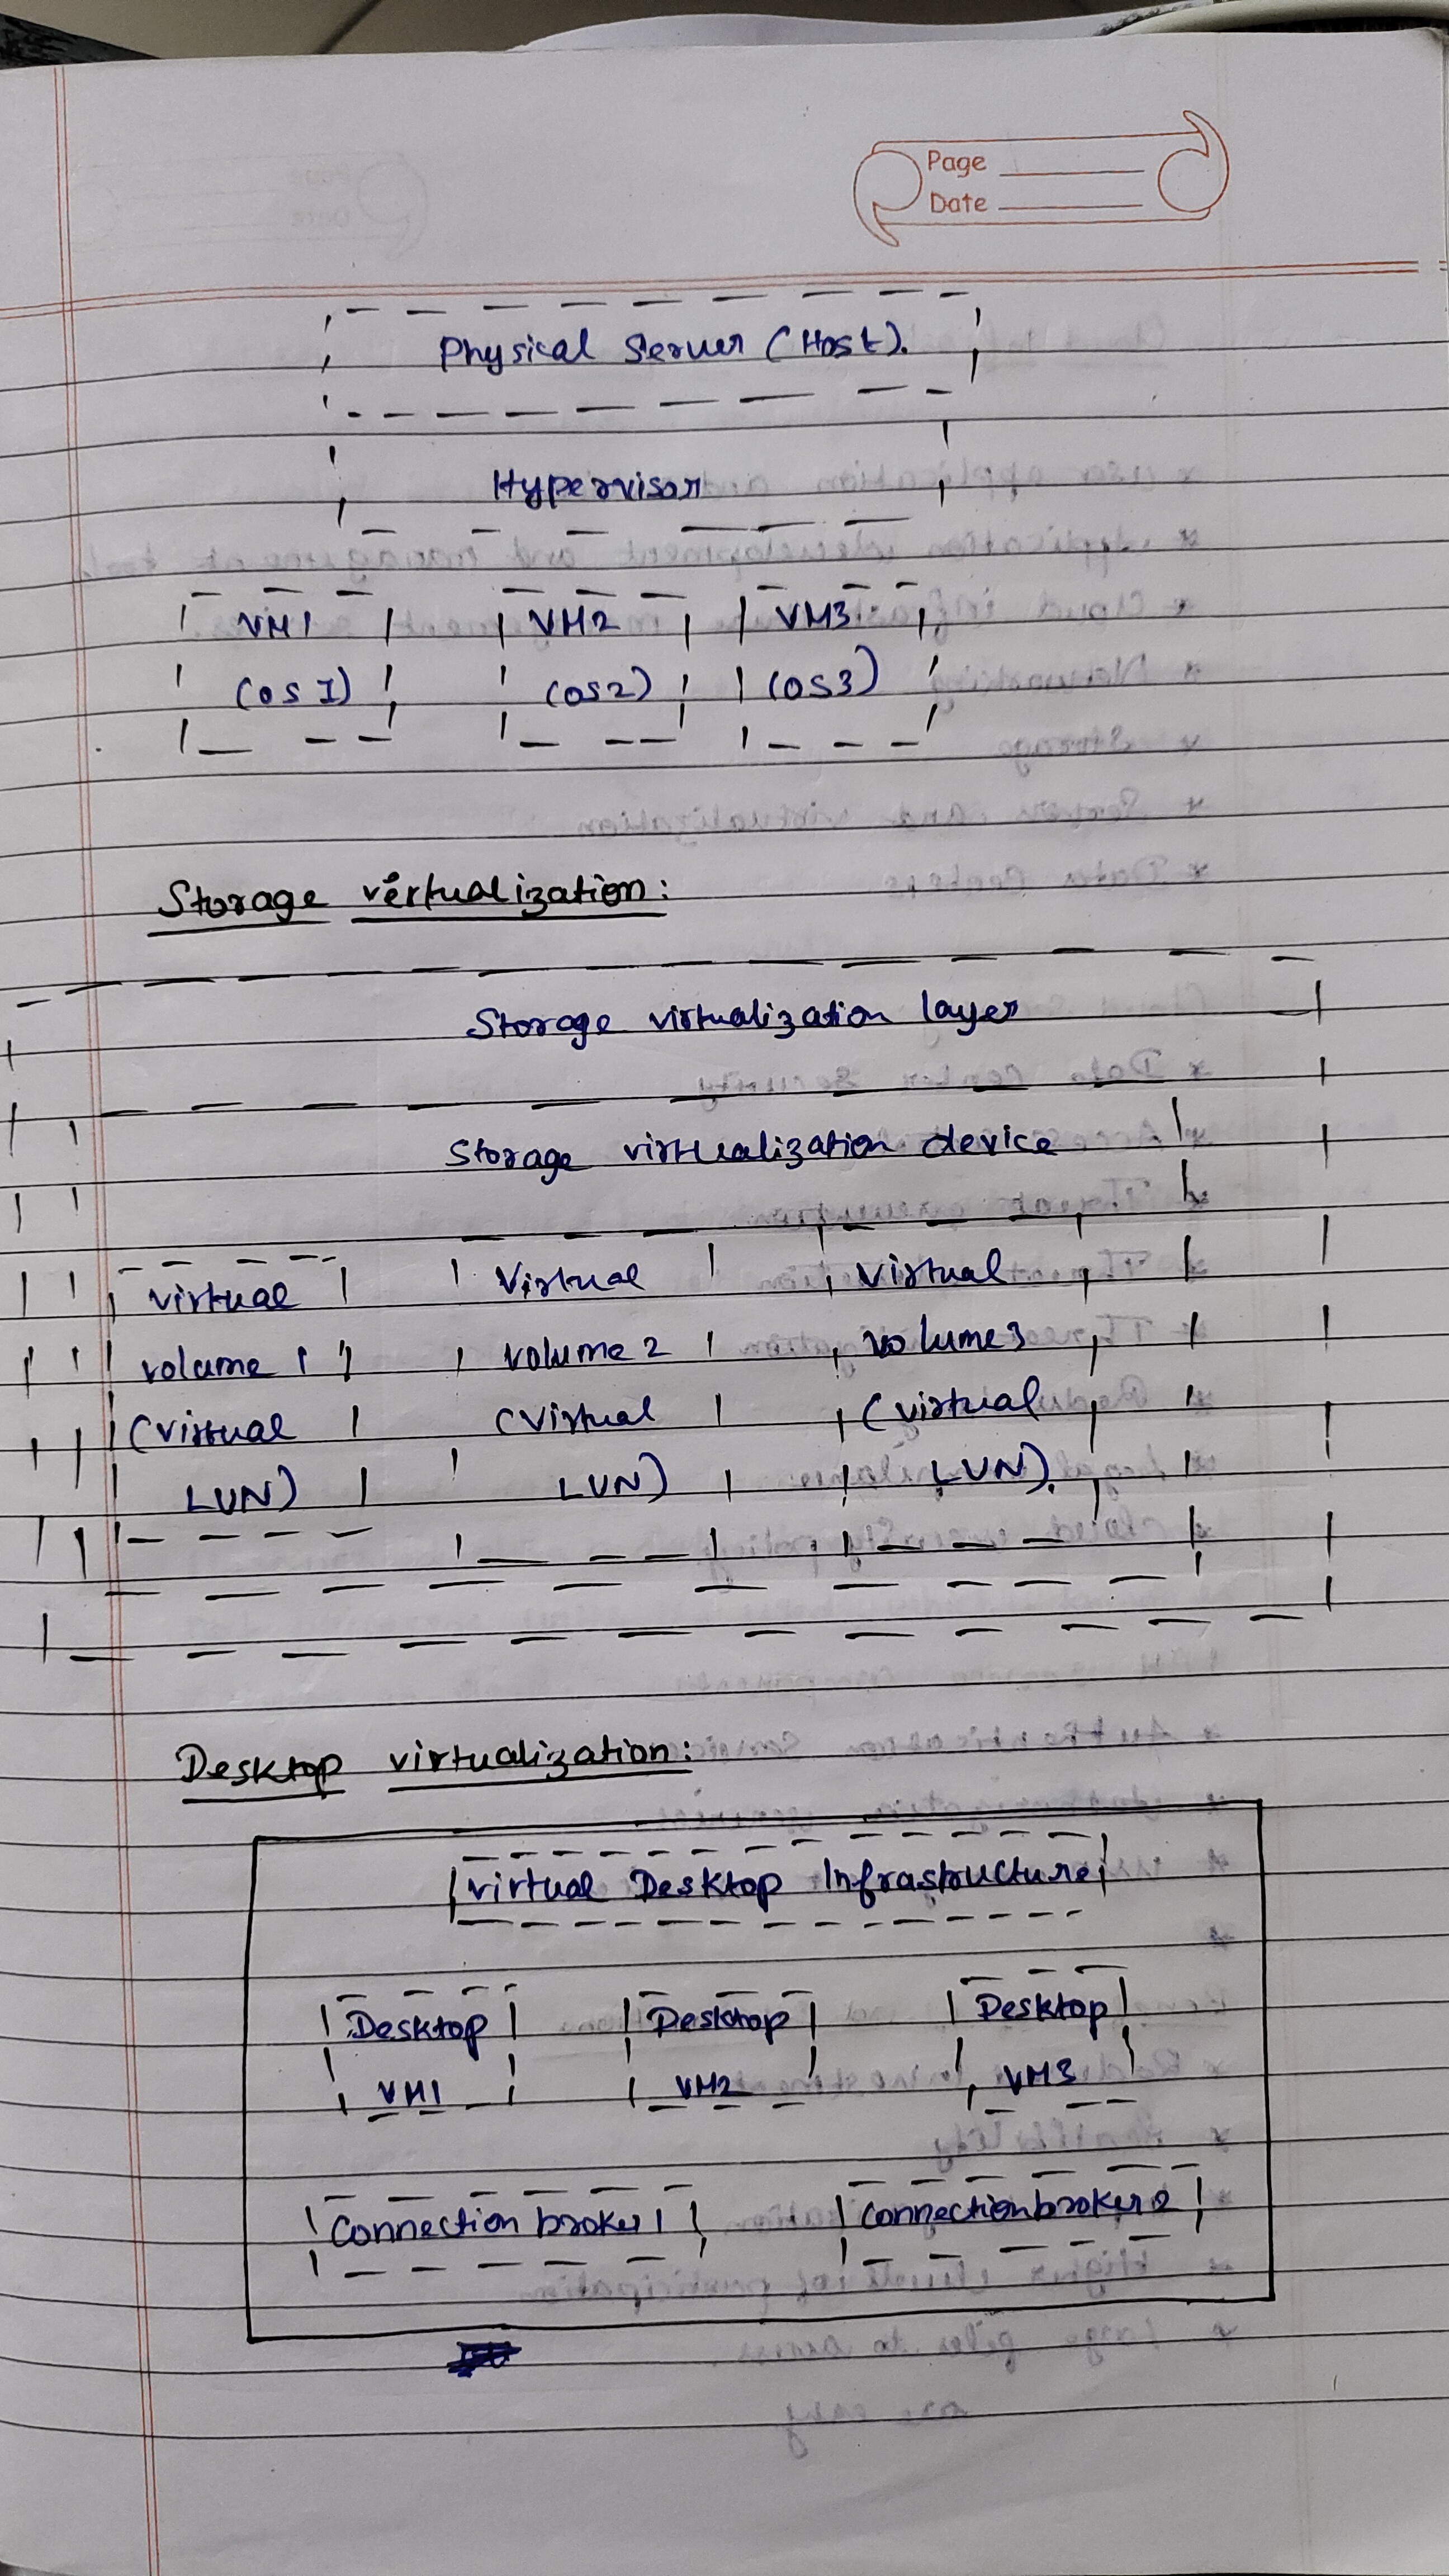 Page
Date
Physical Server (Host).
Hypervisor
VM1 VM2 VM3
(OS 1) (OS2) (OS3)
Storage vertualization:
Storage virtualization layer
Storage virtualization device
virtual Virtual Virtual
volume 1 volume 2 volume 3
(virtual (virtual (virtual
LUN) LUN) LUN).
Desktop virtualization:
virtual Desktop Infrastructure
Desktop Desktop Desktop
VM1 VM2 VM3
Connection broker 1 Connection broker 2